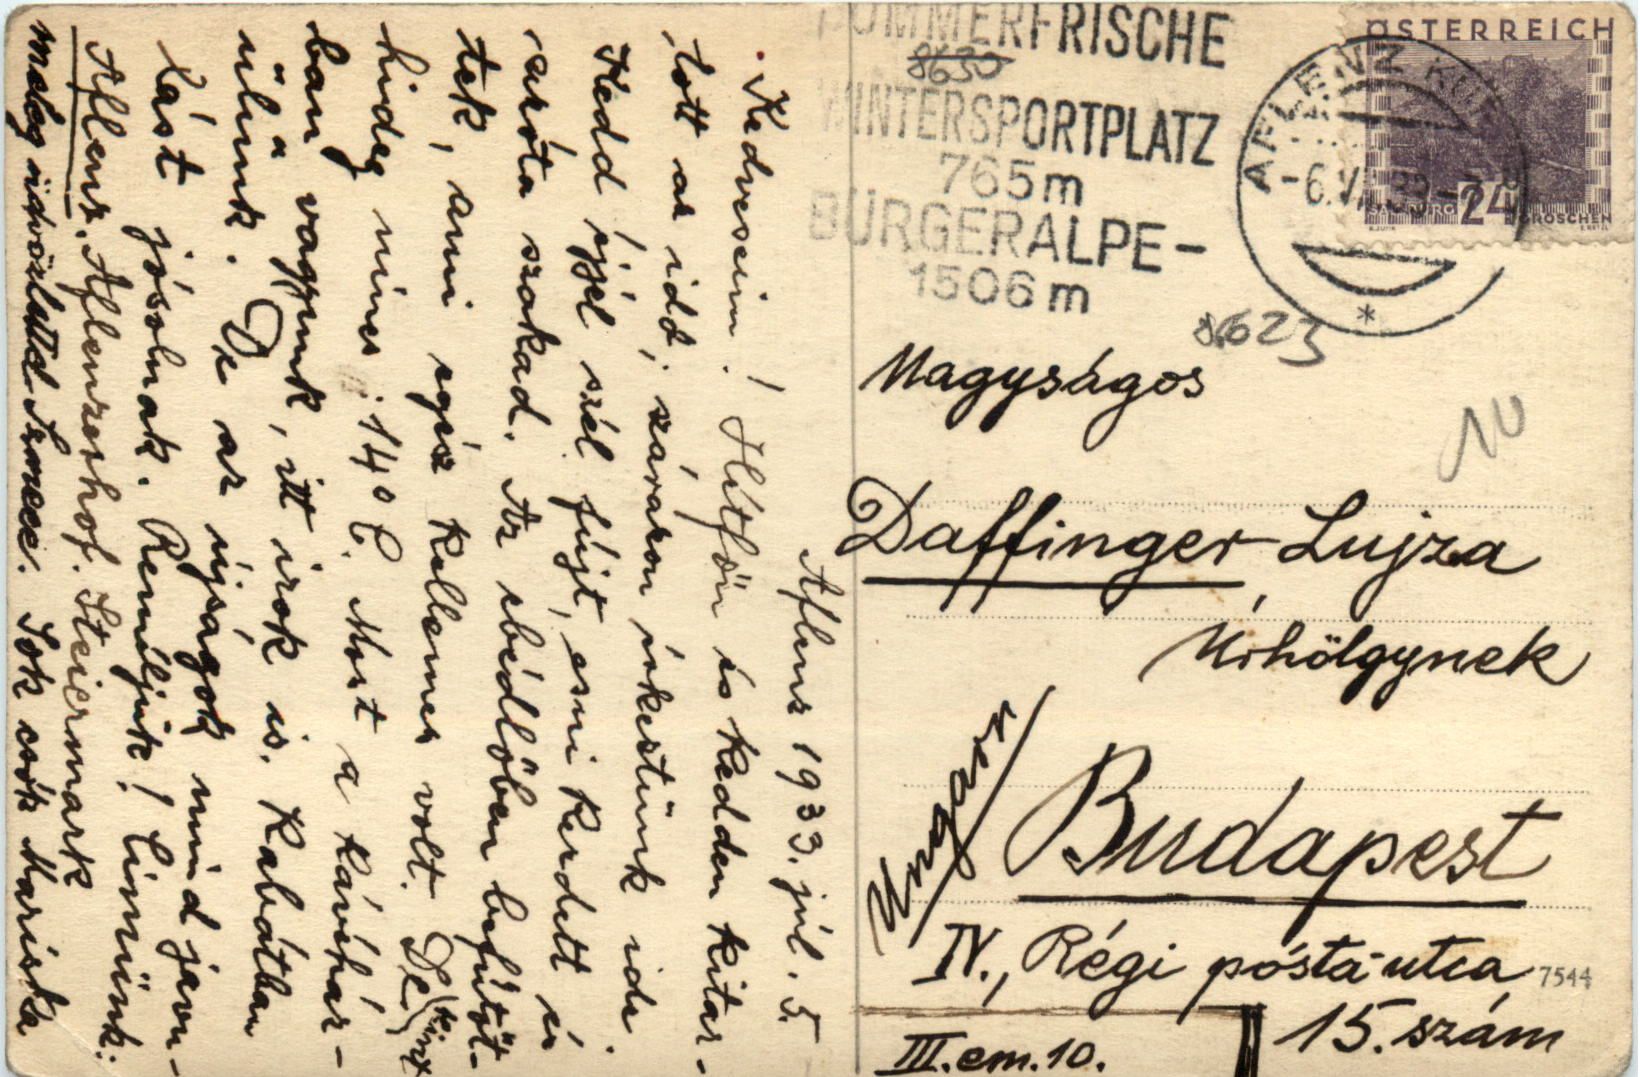 Aflenz 1933. júl. 5.
Kedveseim! Hétfőn és kedden kitar-
tott az idő, szárazon érkeztünk ide.
Kedd éjjel szél fújt, esni kezdett és
azóta szakad. Az ebédlőben befűtöt-
tek, ami egész kellemes volt. De kint
hideg nincs. 14° C. Most a kávéház-
ban vagyunk, itt irok is. Kabátban
ülünk. De az újságok mind javu-
lást jósolnak. Reméljük! Címünk:
Aflenz. Aflenzerhof. Steiermark
meleg üdvözlettel Sok csók Mariska
SOMMERFRISCHE
8630
WINTERSPORTPLATZ
765m
BÜRGERALPE-
1506m
ÖSTERREICH
AFLENZ KUR
-6.VII.33-
24
GROSCHEN
8623
10
Magyságos
Daffinger Lujza
Úrhölgynek
Ungarn
Budapest
IV., Régi pósta-utca
7544
15. szám
III. em. 10.